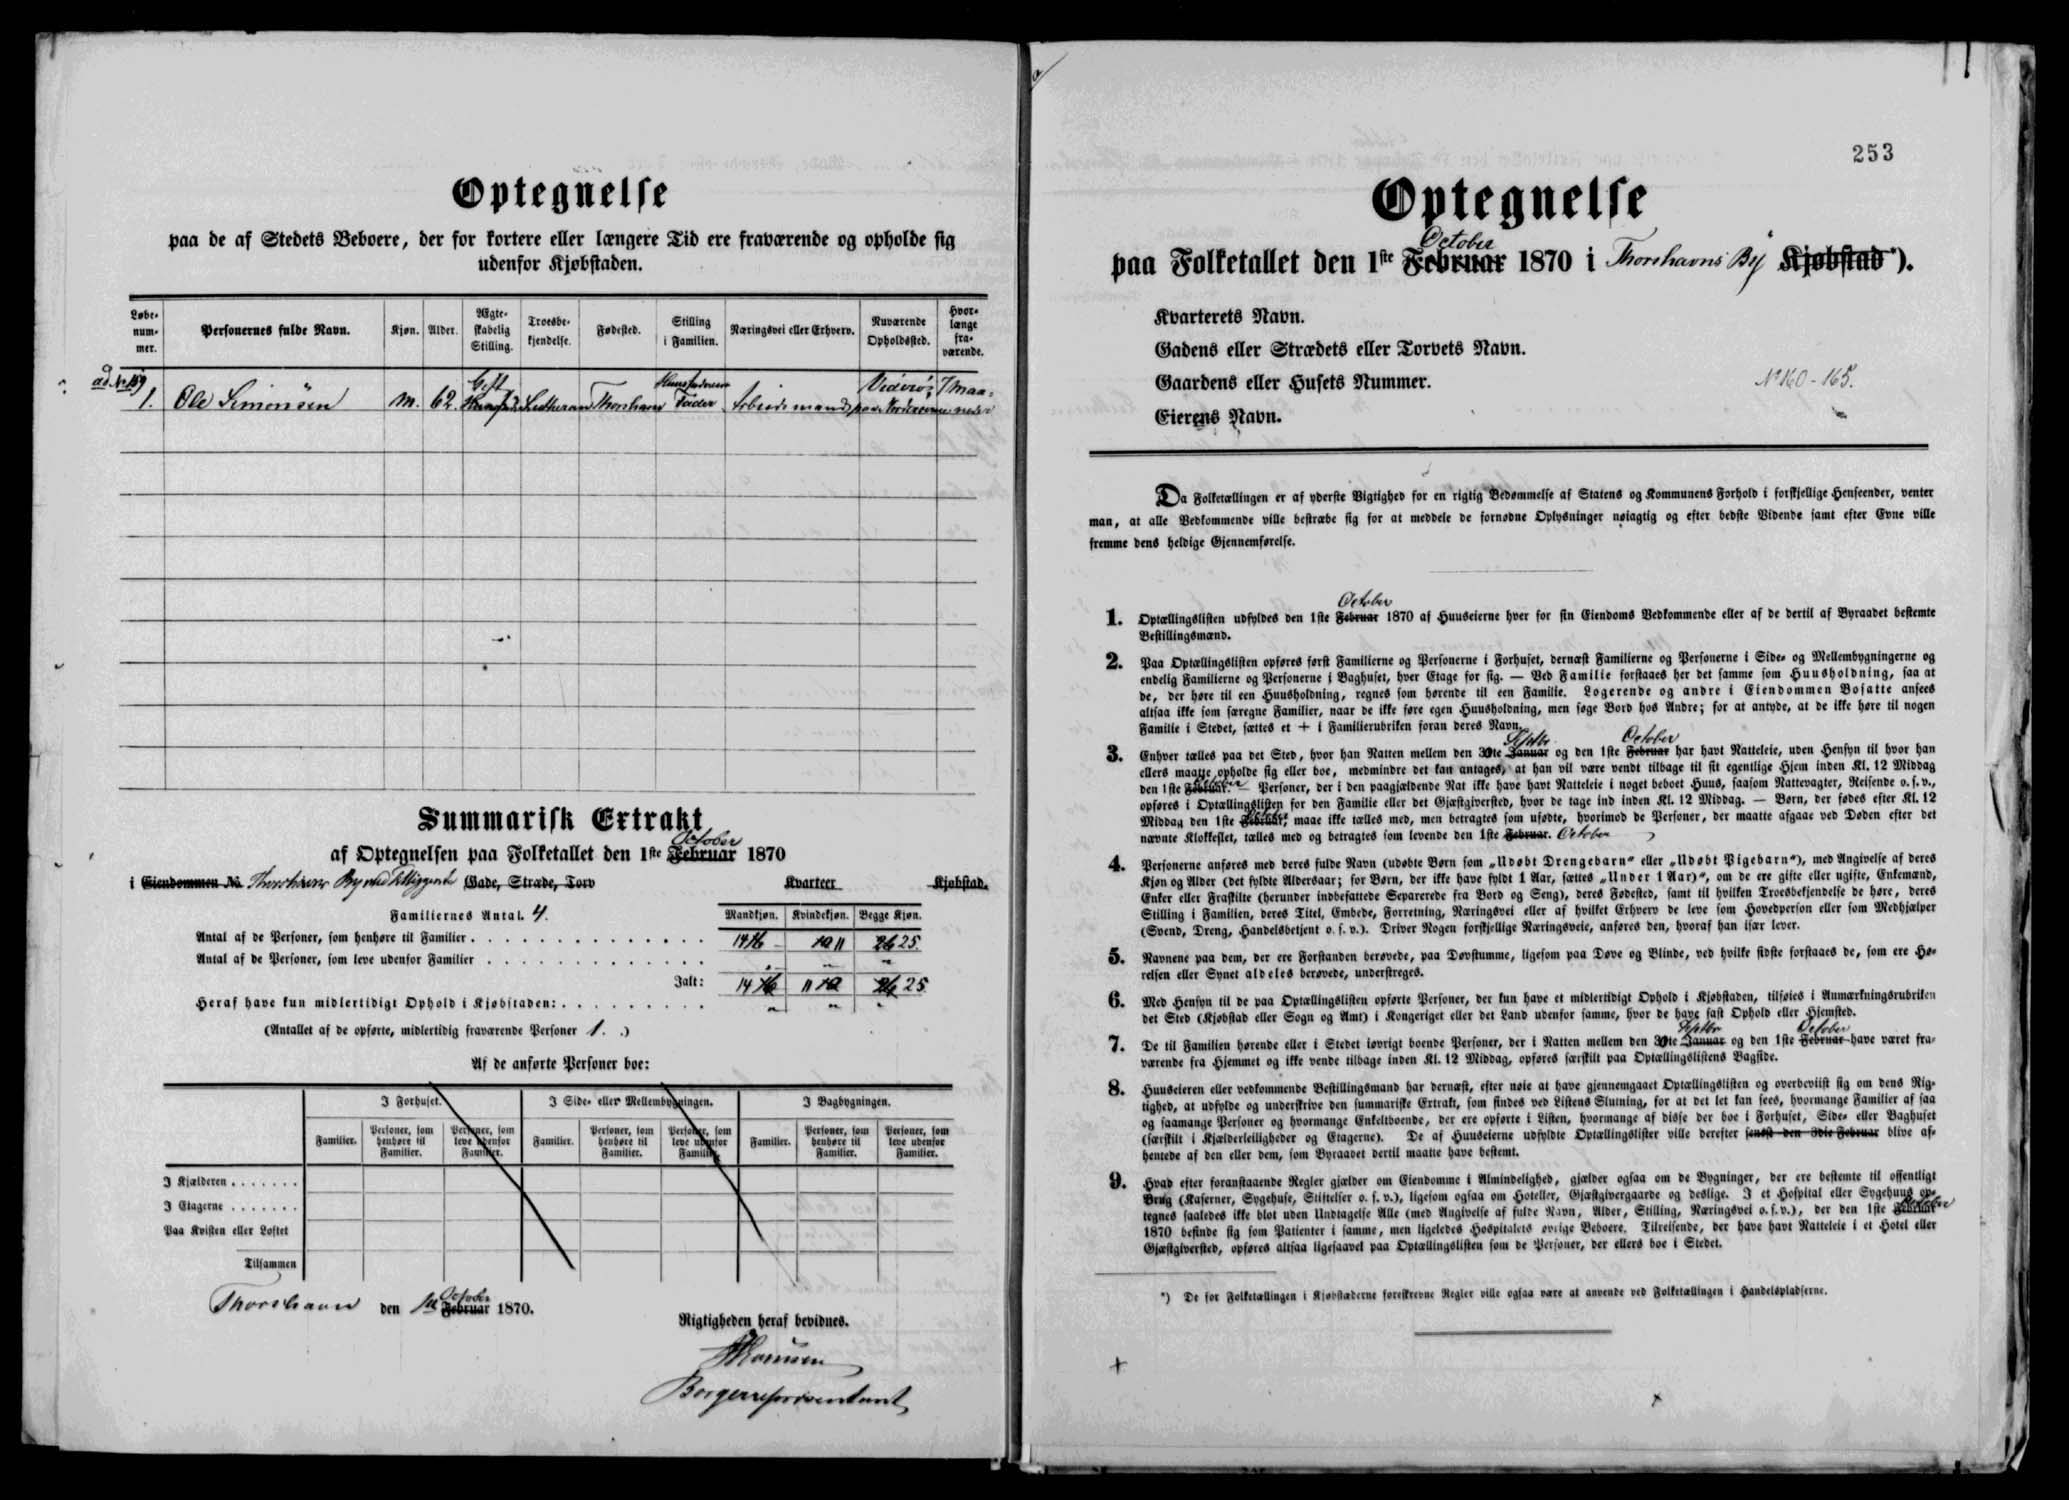 Optegnelse
paa de af Stedets Beboere, der for kortere eller længere Tid ere fraværende og opholde sig
udenfor Kjøbstaden.
Løbe-
num-
mer.
Personernes fulde Navn.
Kjøn.
Alder.
Ægte-
skabelig
Stilling.
Troesbe-
kjendelse.
Fødested.
Stilling
i Familien.
Næringsvei eller Erhverv.
Nuværende
Opholdssted.
Hvor-
længe
fra-
værende.
ad No 159
1. Ole Simonsen m. 62. Gift Lutheran Thorshavn Huusfaderens Fader Arbeidsmand Viderø; paa Norderøerne 7 Maa-
neder
Summarisk Extrakt
October
af Optegnelsen paa Folketallet den 1ste Februar 1870
i Eiendommen No. Thorshavns By Gade, Stræde, Torv Kvarteer Kjøbstad.
Familiernes Antal. 4.
Mandkjøn. Kvindekjøn. Begge Kjøn.
Antal af de Personer, som henhøre til Familier . . . 14 16 10 11 26 25.
Antal af de Personer, som leve udenfor Familier . . . „ „ „
Ialt: 14 16 11 10 26 25
Heraf have kun midlertidigt Ophold i Kjøbstaden: . . . „ „ „
(Antallet af de opførte, midlertidig fraværende Personer 1. .)
Af de anførte Personer boe:
I Forhuset. I Side- eller Mellembygningen. I Bagbygningen.
Familier. Personer, som henhøre til Familier. Personer, som leve udenfor Familier. Familier. Personer, som henhøre til Familier. Personer, som leve udenfor Familier. Familier. Personer, som henhøre til Familier. Personer, som leve udenfor Familier.
I Kjælderen . . . . . . .
I Etagerne . . . . . . .
Paa Kvisten eller Loftet
Tilsammen
Thorshavn den 1ste October Februar 1870.
Rigtigheden heraf bevidnes.
Borgerrepræsentant
253
Optegnelse
October
paa Folketallet den 1ste Februar 1870 i Thorshavns By Kjøbstad*).
Kvarterets Navn.
Gadens eller Strædets eller Torvets Navn.
Gaardens eller Husets Nummer. No 160-165.
Eierens Navn.
Da Folketællingen er af yderste Vigtighed for en rigtig Bedømmelse af Statens og Kommunens Forhold i forskjellige Henseender, venter
man, at alle Vedkommende ville bestræbe sig for at meddele de fornødne Oplysninger nøiagtig og efter bedste Vidende samt efter Evne ville
fremme dens heldige Gjennemførelse.
October
1. Optællingslisten udfyldes den 1ste Februar 1870 af Huuseierne hver for sin Eiendoms Vedkommende eller af de dertil af Byraadet bestemte
Bestillingsmænd.
2. Paa Optællingslisten opføres først Familierne og Personerne i Forhuset, dernæst Familierne og Personerne i Side- og Mellembygningerne og
endelig Familierne og Personerne i Baghuset, hver Etage for sig. — Ved Familie forstaaes her det samme som Huusholdning, saa at
de, der høre til een Huusholdning, regnes som hørende til een Familie. Logerende og andre i Eiendommen Bosatte ansees
altsaa ikke som særegne Familier, naar de ikke føre egen Huusholdning, men søge Bord hos Andre; for at antyde, at de ikke høre til nogen
Familie i Stedet, sættes et + i Familierubriken foran deres Navn.
Septbr October
3. Enhver tælles paa det Sted, hvor han Natten mellem den 30te Januar og den 1ste Februar har havt Natteleie, uden Hensyn til hvor han
ellers maatte opholde sig eller boe, medmindre det kan antages, at han vil være vendt tilbage til sit egentlige Hjem inden Kl. 12 Middag
den 1ste Februar October. — Personer, der i den paagjældende Nat ikke have havt Natteleie i noget beboet Huus, saasom Nattevagter, Reisende o. s. v.,
opføres i Optællingslisten for den Familie eller det Gjæstgiversted, hvor de tage ind inden Kl. 12 Middag. — Børn, der fødes efter Kl. 12
Middag den 1ste Februar October, maae ikke tælles med, men betragtes som ufødte, hvorimod de Personer, der maatte afgaae ved Døden efter det
nævnte Klokkeslet, tælles med og betragtes som levende den 1ste Februar. October
4. Personerne anføres med deres fulde Navn (udøbte Børn som „Udøbt Drengebarn“ eller „Udøbt Pigebarn“), med Angivelse af deres
Kjøn og Alder (det fyldte Aldersaar; for Børn, der ikke have fyldt 1 Aar, sættes „Under 1 Aar)“, om de ere gifte eller ugifte, Enkemænd,
Enker eller Fraskilte (herunder indbefattede Separerede fra Bord og Seng), deres Fødested, samt til hvilken Troesbekjendelse de høre, deres
Stilling i Familien, deres Titel, Embede, Forretning, Næringsvei eller af hvilket Erhverv de leve som Hovedperson eller som Medhjælper
(Svend, Dreng, Handelsbetjent o. s. v.). Driver Nogen forskjellige Næringsveie, anføres den, hvoraf han især lever.
5. Navnene paa dem, der ere Forstanden berøvede, paa Døvstumme, ligesom paa Døve og Blinde, ved hvilke sidste forstaaes de, som ere Hø-
relsen eller Synet aldeles berøvede, understreges.
6. Med Hensyn til de paa Optællingslisten opførte Personer, der kun have et midlertidigt Ophold i Kjøbstaden, tilføies i Anmærkningsrubriken
det Sted (Kjøbstad eller Sogn og Amt) i Kongeriget eller det Land udenfor samme, hvor de have fast Ophold eller Hjemsted.
Septbr October
7. De til Familien hørende eller i Stedet iøvrigt boende Personer, der i Natten mellem den 30te Januar og den 1ste Februar have været fra-
værende fra Hjemmet og ikke vende tilbage inden Kl. 12 Middag, opføres særskilt paa Optællingslistens Bagside.
8. Huuseieren eller vedkommende Bestillingsmand har dernæst, efter nøie at have gjennemgaaet Optællingslisten og overbeviist sig om dens Rig-
tighed, at udfylde og underskrive den summariske Extrakt, som findes ved Listens Slutning, for at det let kan sees, hvormange Familier af saa
og saamange Personer og hvormange Enkeltboende, der ere opførte i Listen, hvormange af disse der boe i Forhuset, Side- eller Baghuset
(særskilt i Kjælderleiligheder og Etagerne). De af Huuseierne udfyldte Optællingslister ville derefter senest den 3die Februar blive af-
hentede af den eller dem, som Byraadet dertil maatte have bestemt.
9. Hvad efter foranstaaende Regler gjælder om Eiendomme i Almindelighed, gjælder ogsaa om de Bygninger, der ere bestemte til offentligt
Brug (Kaserner, Sygehuse, Stiftelser o. s. v.), ligesom ogsaa om Hoteller, Gjæstgivergaarde og deslige. I et Hospital eller Sygehuus op-
tegnes saaledes ikke blot uden Undtagelse Alle (med Angivelse af fulde Navn, Alder, Stilling, Næringsvei o. s. v.), der den 1ste Februar October
1870 befinde sig som Patienter i samme, men ligeledes Hospitalets øvrige Beboere. Tilreisende, der have havt Natteleie i et Hotel eller
Gjæstgiversted, opføres altsaa ligesaavel paa Optællingslisten som de Personer, der ellers boe i Stedet.
*) De for Folketællingen i Kjøbstæderne foreskrevne Regler ville ogsaa være at anvende ved Folketællingen i Handelspladserne.